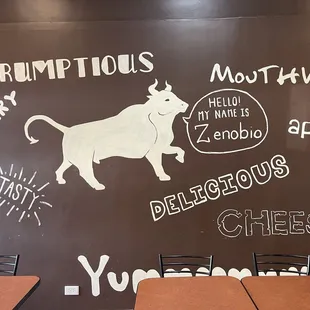 RUMPTIOUS
MOUTHW
RY
HELLO!
MY NAME IS
Zenobio
AP
TASTY
DELICIOUS
CHEES
Yum